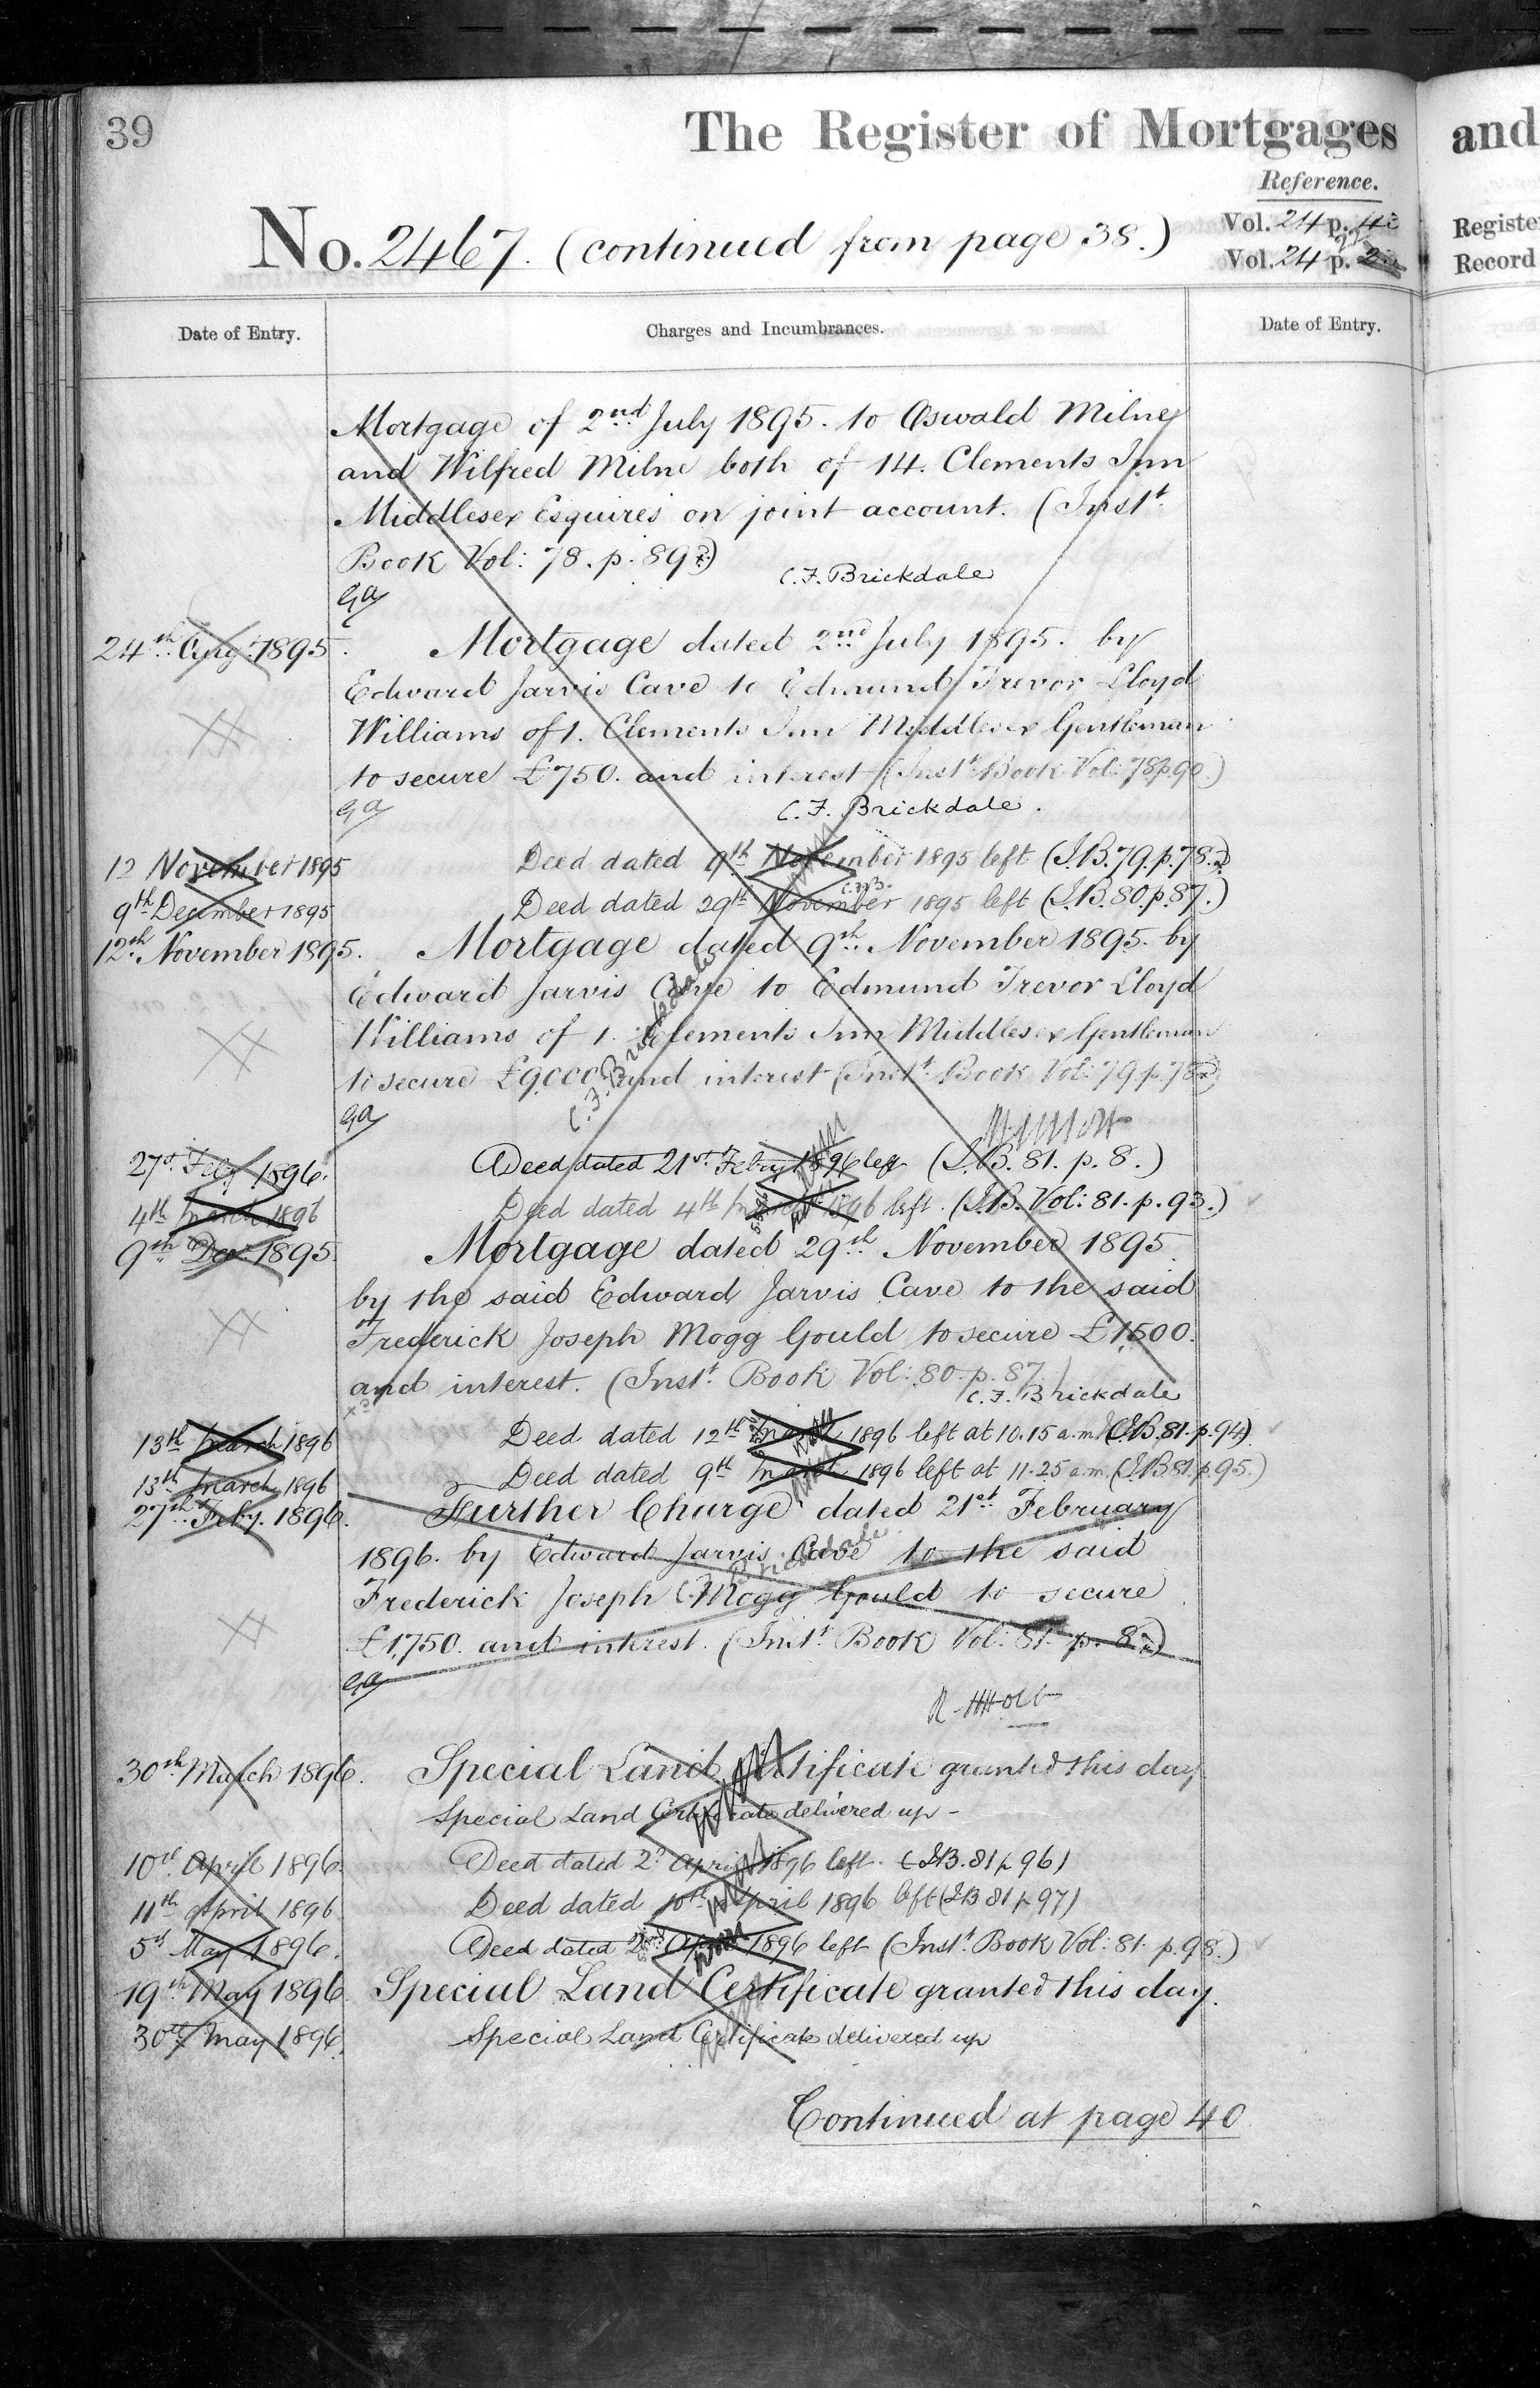 39
The Register of Mortgages
and
Reference.
No. 2467. (continued from page 38.)
Vol. 24 p.
Vol. 24 p.
Registe
Record
Date of Entry.
Charges and Incumbrances.
Date of Entry.
Mortgage of 2nd July 1895. to Oswald Milne
and Wilfred Milne both of 14. Clements Inn
Middlesex Esquires on joint account. (Instt.
Book Vol: 78. p. 89)
C. F. Brickdale
24th Augt. 1895. Mortgage dated 2nd July 1895. by
Edward Jarvis Cave to Edmund Trevor Lloyd
Williams of 1. Clements Inn Middlesex Gentleman
to secure £750. and interest (Instt. Book Vol: 78 p. 90.)
C. F. Brickdale.
12 November 1895 Deed dated 9th November 1895 left (I.B. 79. p. 78.)
9th December 1895 Deed dated 29th November 1895 left (I.B. 80. p. 87.)
12th November 1895. Mortgage dated 9th November 1895. by
Edward Jarvis Cave to Edmund Trevor Lloyd
Williams of 1. Clements Inn Middlesex Gentleman
to secure £9000 and interest (Instt. Book Vol: 79 p. 78)
C. F. Brickdale
27th Feby 1896. Deed dated 21st Feby 1896 left (I.B. 81. p. 8.)
4th March 1896 Deed dated 4th March 1896 left. (I.B. Vol: 81. p. 93.)
9th Decr 1895. Mortgage dated 29th November 1895.
by the said Edward Jarvis Cave to the said
Frederick Joseph Mogg Gould to secure £1,500.
and interest. (Instt. Book Vol: 80. p. 87.)
C. F. Brickdale
13th March 1896 Deed dated 12th March 1896 left at 10.15 a.m. (I.B. 81. p. 94)
13th March 1896 Deed dated 9th March 1896 left at 11.25 a.m. (I.B. 81. p. 95.)
27th Feby. 1896. Further Charge dated 21st February
1896. by Edward Jarvis Cave to the said
Frederick Joseph Mogg Gould to secure
£1,750. and interest. (Instt. Book Vol: 81. p. 8)
C. F. Brickdale
30th March 1896. Special Land Certificate granted this day
Special Land Certificate delivered up -
10th April 1896. Deed dated 2d April 1896 left. (I.B. 81 p 96)
11th April 1896 Deed dated 10th April 1896 left (I.B 81 p 97)
5th May 1896. Deed dated April 1896 left (Instt. Book Vol: 81. p. 98.)
19th May 1896 Special Land Certificate granted this day.
30th May 1896. Special Land Certificate delivered up
Continued at page 40